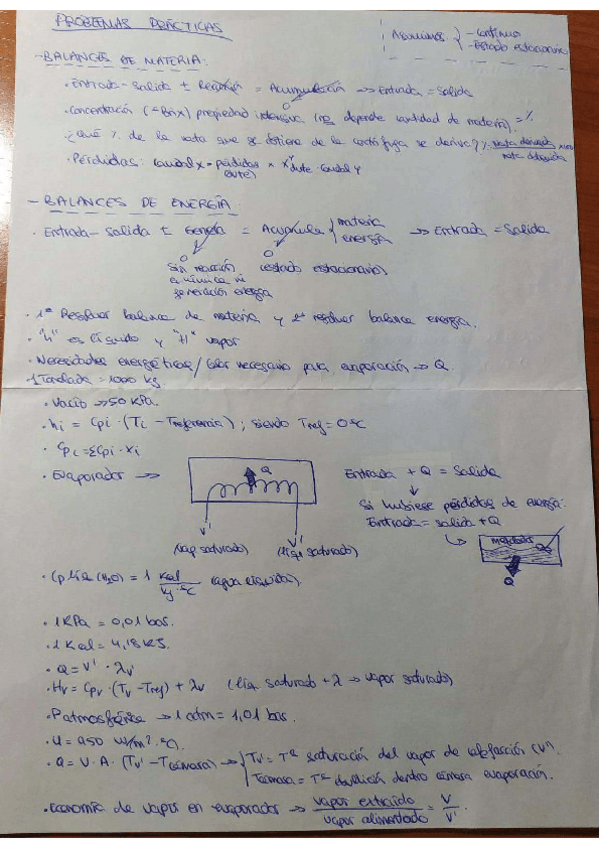 PROBLEMAS PRÁCTICAS
Asumimos { - Continuo
- Estado estacionario
- BALANCES DE MATERIA:
· Entrada - Salida ± Reacción = Acumulación → Entrada = Salida
0
· Concentración (= Brix) propiedad intensiva (no depende cantidad de materia) = %
¿Qué % de la nata que se obtiene de la centrífuga se deriva? % nata derivada x100
nata obtenida
· Pérdidas: Caudal x = pérdidas x
- BALANCES DE ENERGÍA:
· Entrada - Salida ± Genera = Acumula { materia
energía → Entrada = Salida
0 0
Sin reacción (estado estacionario)
química ni
generación energía
· 1º Resolver balance de materia y 2º resolver balance energía.
· "h" es líquido y "H" vapor
· Necesidades energéticas / Calor necesario para evaporación → Q.
· 1 Tonelada = 1000 kg
· Vacío → 50 KPa.
· hi = Cpi · (Ti - Treferencia) ; siendo Tref = 0ºC
· Cpc = ΣCpi · xi
· Evaporador →
Q
V' V'
(Vap saturado) (líq. saturado)
Entrada + Q = Salida
Si hubiese pérdidas de energía:
Entrada = salida + Q
Q
· Cp líq (H2O) = 1 Kcal
kg·ºC (agua líquida).
· 1 KPa = 0,01 bar.
· 1 Kcal = 4,18 KJ.
· Q = V' · λv'
· Hv = Cpv · (Tv - Tref) + λv (líq. saturado + λ → vapor saturado)
· Patmosférica → 1 atm = 1,01 bar.
· U = 950 W/m²·ºC.
· Q = U · A · (Tv' - Tcámara) → { Tv' = Tª saturación del vapor de calefacción (V').
Tcámara = Tª ebullición dentro cámara evaporación.
· Economía de vapor en evaporador → vapor extraído = V
vapor alimentado V'